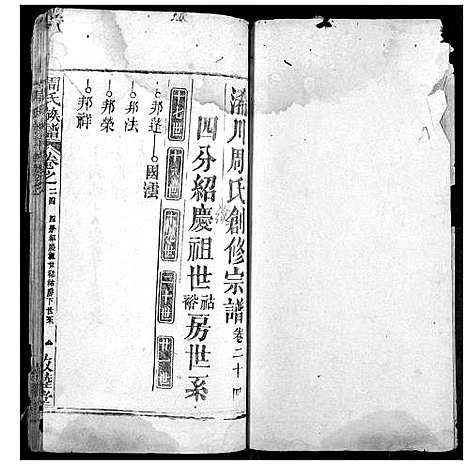 川周氏創修宗譜卷二十四
四分紹慶祖世祜裕房世系
十七世 十八世 十九世 二十世
邦蓬 國澐
邦法
邦榮
邦祥
周氏族譜 卷之二四 四分紹慶祖世祜裕房下世系 敦睦堂